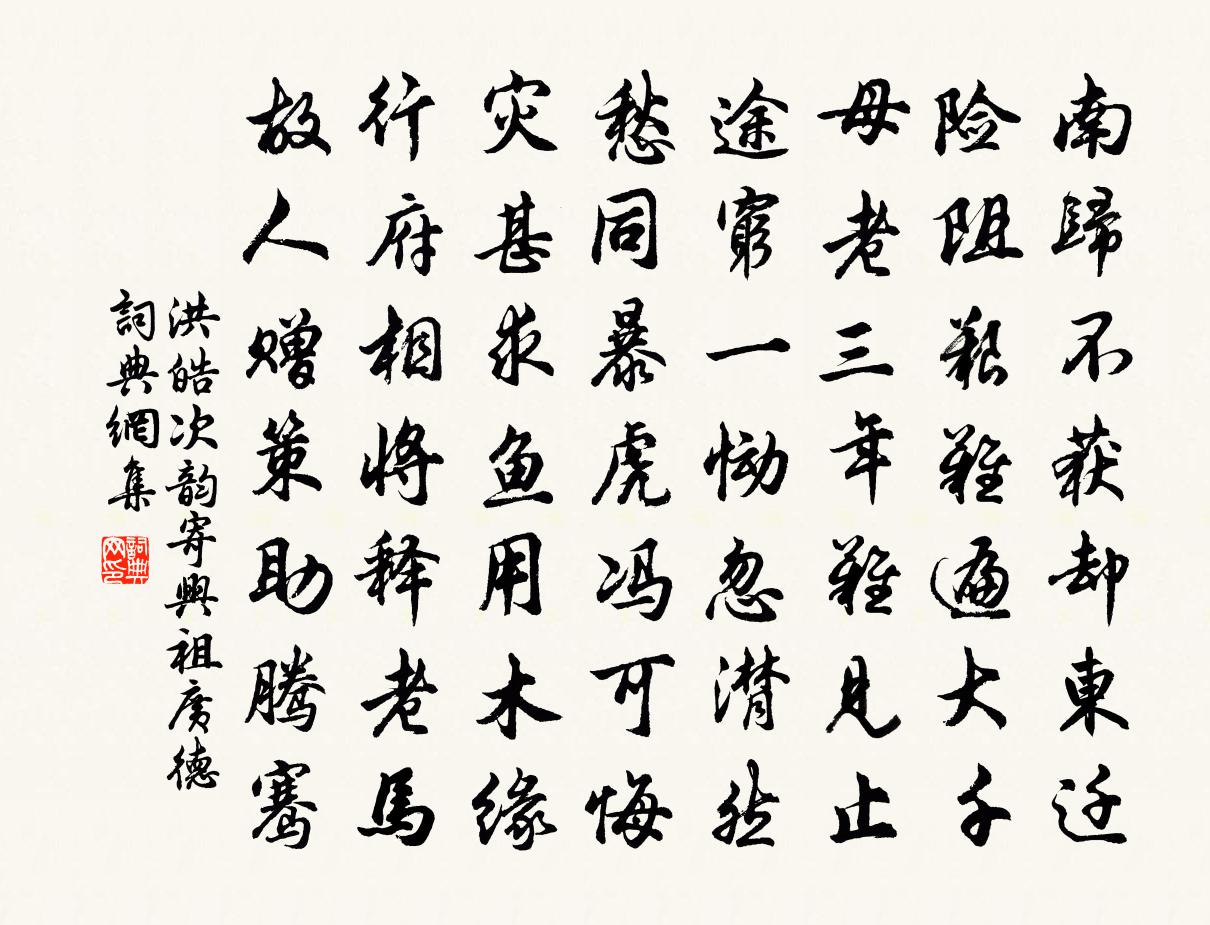 南歸不获却東迁
险阻艱難遍大千
母老三年難見止
途窮一恸忽潸然
愁同暴虎冯可悔
灾甚求鱼用木缘
行府相将释老馬
故人赠策助腾骞
洪皓次韵寄興祖廣德
詞典網集
詞典網印